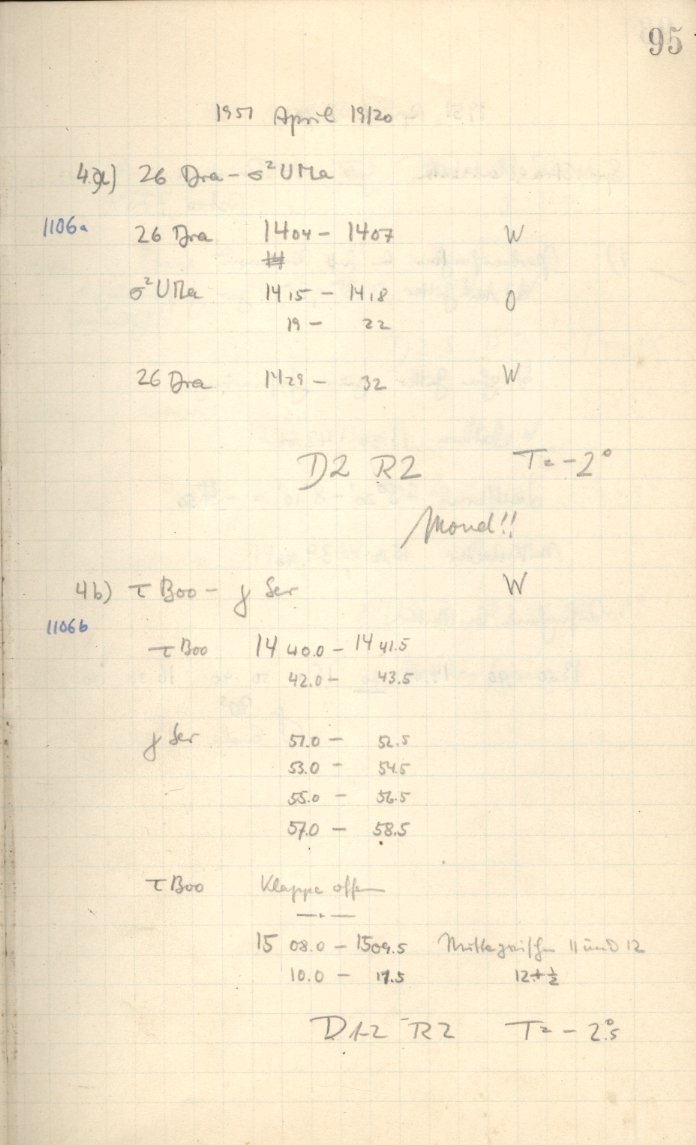 95
1951 April 19/20
4a) 26 Dra - σ² UMa
1106a
26 Dra 1404 - 1407 W
σ² UMa 1415 - 1418 O
19 - 22
26 Dra 1429 - 32 W
D2 R2 T = -2°
Mond!!
4b) τ Boo - γ Ser W
1106b
τ Boo 14 40.0 - 14 41.5
42.0 - 43.5
γ Ser 51.0 - 52.5
53.0 - 54.5
55.0 - 56.5
57.0 - 58.5
τ Boo Klappe offen
15 08.0 - 15 09.5 Mitte zwischen 11 und 12
10.0 - 11.5 12 + ½
D1-2 R2 T = -2°.5